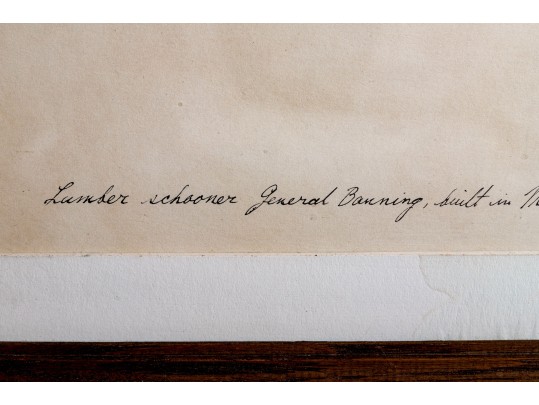 Lumber schooner General Banning, built in